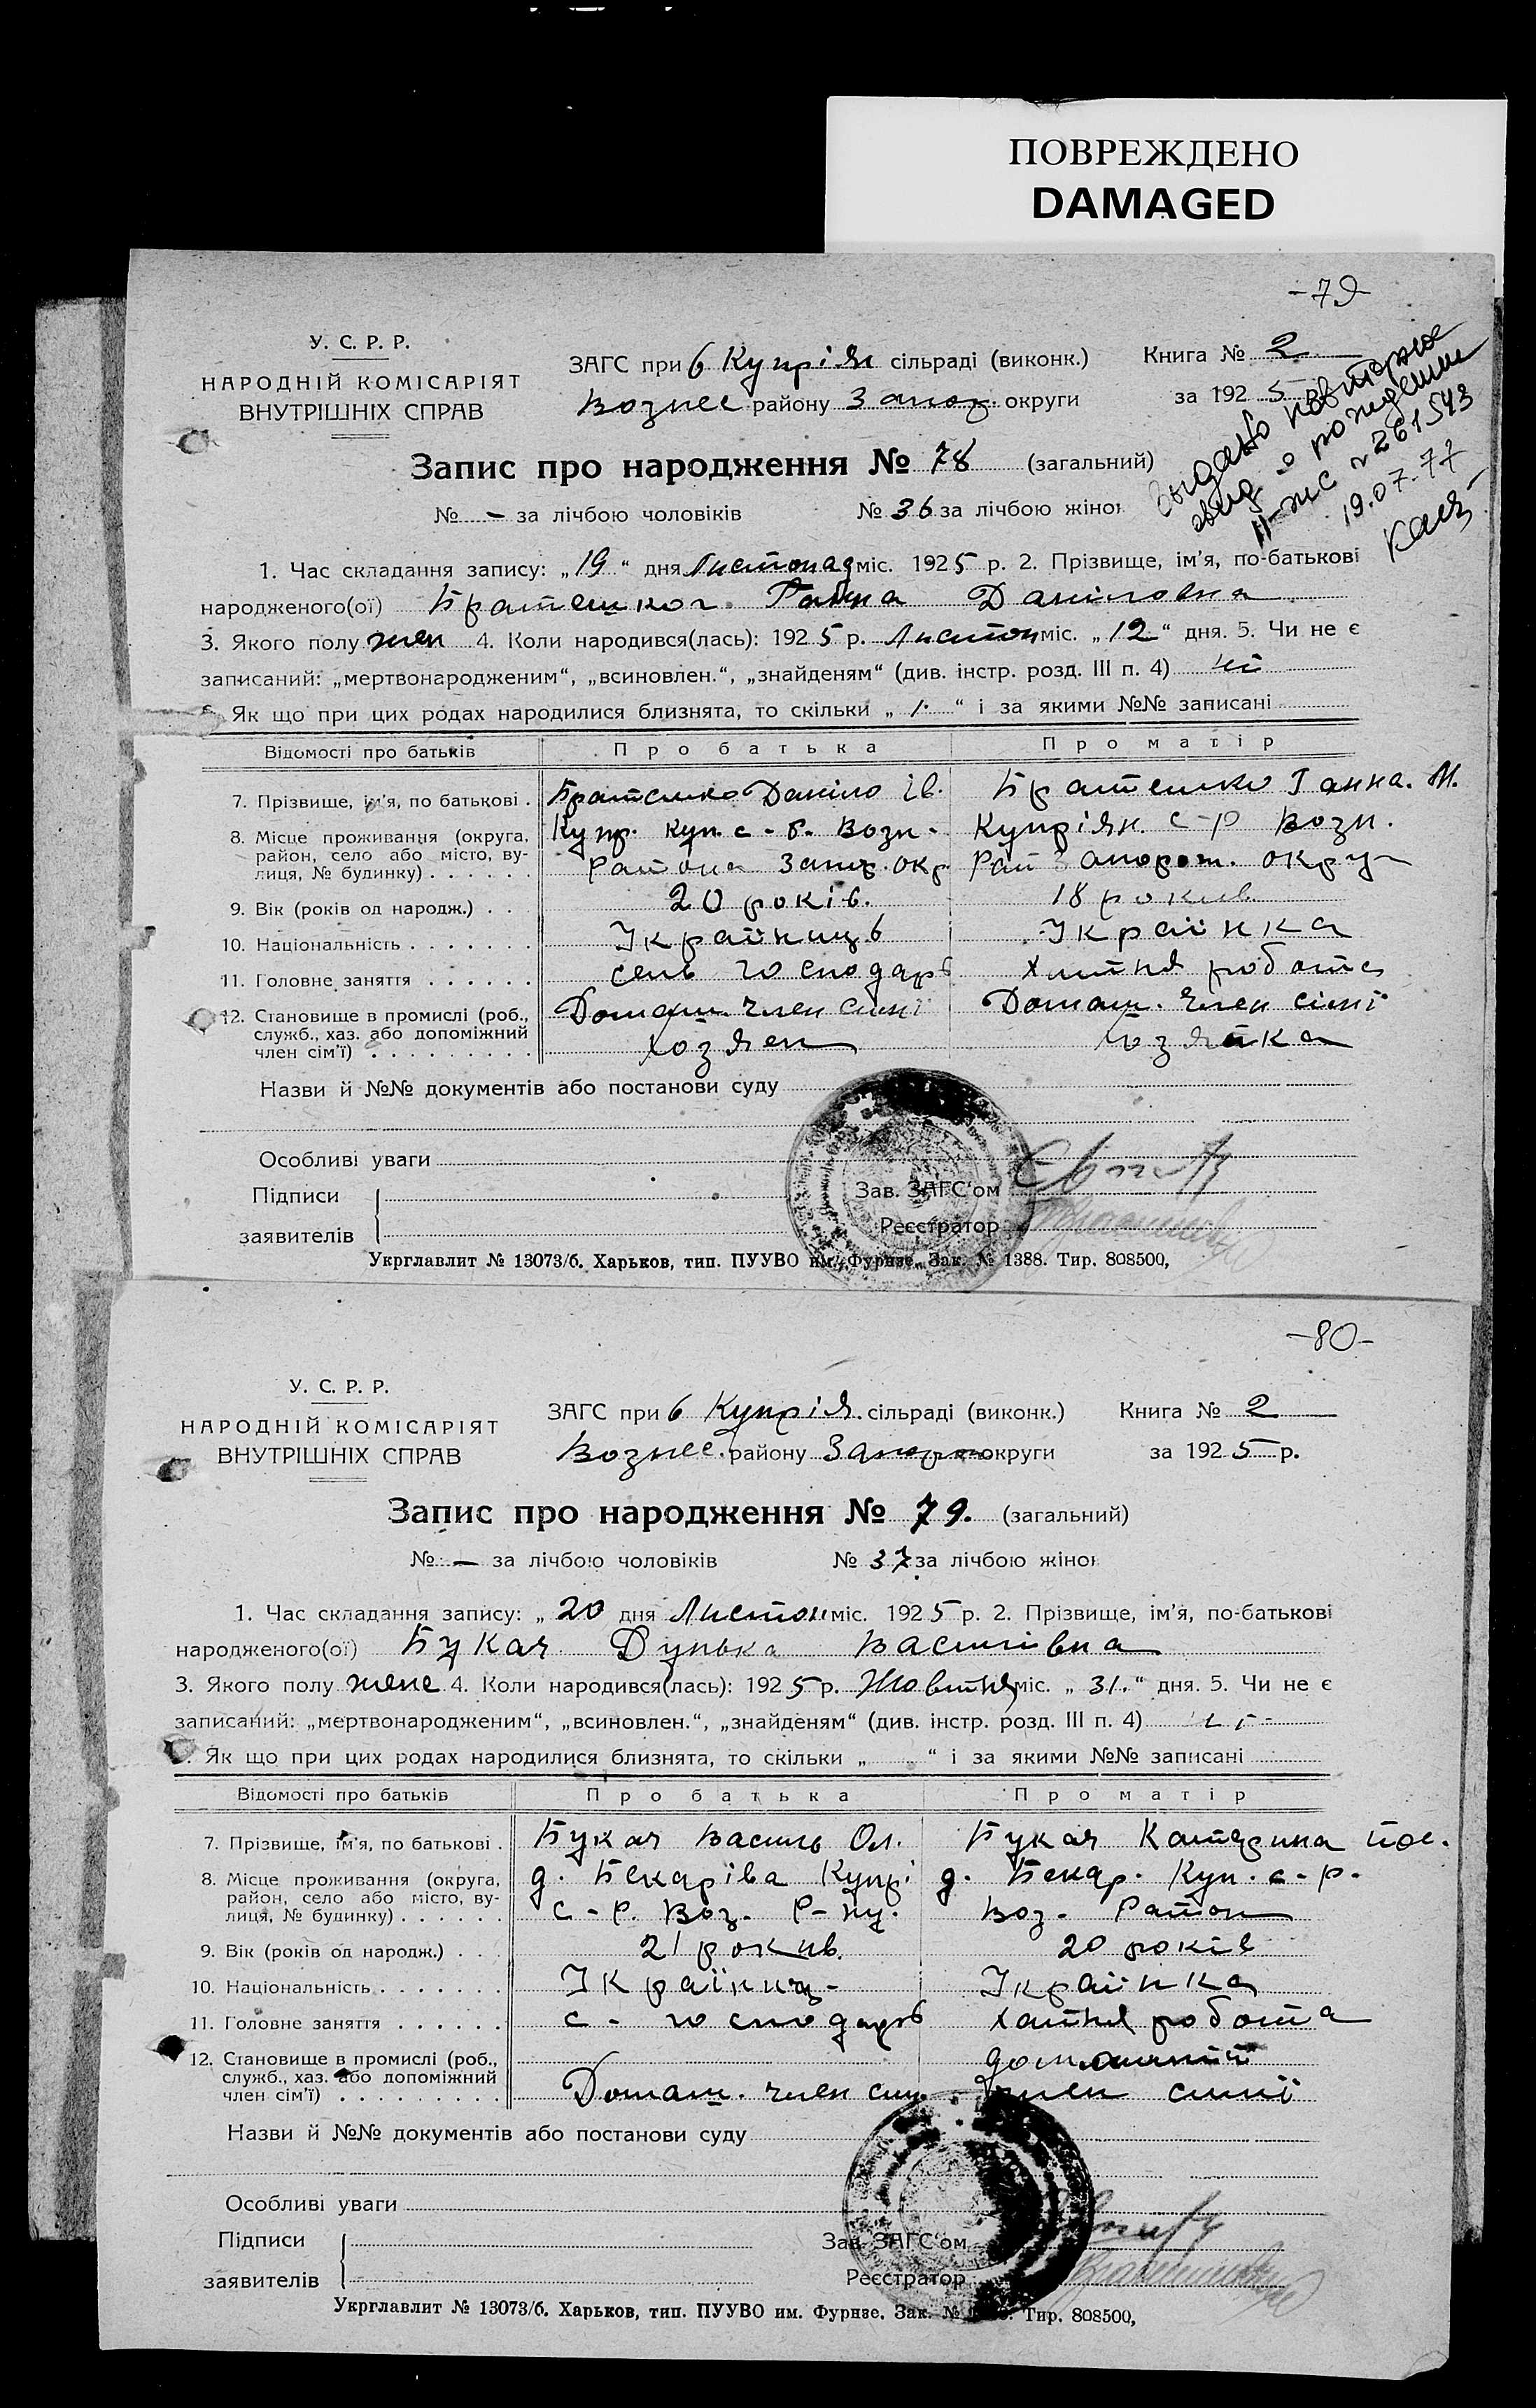 ПОВРЕЖДЕНО
DAMAGED
-79-
У. С. Р. Р.
НАРОДНІЙ КОМІСАРІЯТ
ВНУТРІШНІХ СПРАВ
ЗАГС при б Купріян сільраді (виконк.)
Вознес району Запоз. округи
Книга № 2
за 192 5
выдано повторно
свид о рождении
II-ЖС № 261543
19.07.77
Запис про народження № 78 (загальний)
№ — за лічбою чоловіків № 36 за лічбою жінок
1. Час складання запису: „ 19 “ дня Листопад міс. 192 5 р. 2. Прізвище, ім’я, по-батькові
народженого(ої) Братешко Ганна Даніловна
3. Якого полу жен 4. Коли народився(лась): 192 5 р. Листоп міс. „ 12 “ дня. 5. Чи не є
записаний: „мертвонародженим“, „всиновлен.“, „знайденям“ (див. інстр. розд. III п. 4) ні
6. Як що при цих родах народилися близнята, то скільки „ 1. “ і за якими №№ записані
Відомості про батьків Про батька Про матір
7. Прізвище, ім’я, по батькові . Братешко Даніло Ів. Братешко Ганна. М.
8. Місце проживання (округа, район, село або місто, вулиця, № будинку) Купр. Куп. с-р. Возн. Купріян. с-р Возн.
Района Запор. окр Рай Запорож. округ
9. Вік (років од народж.) 20 років. 18 рокив
10. Національність Українць Українка
11. Головне заняття сель господарь хатня робота
12. Становище в промислі (роб., служб., хаз. або допоміжний член сім’ї) Домаш. член сімї Домаш. член сімї
Хозяен Хозяйка
Назви й №№ документів або постанови суду
Особливі уваги
Підписи
заявителів
Зав. ЗАГС‘ом
Реєстратор
Укрглавлит № 13073/б. Харьков, тип. ПУУВО им. Фрунзе. Зак. № 1388. Тир. 808500,
-80-
У. С. Р. Р.
НАРОДНІЙ КОМІСАРІЯТ
ВНУТРІШНІХ СПРАВ
ЗАГС при б Купрія. сільраді (виконк.)
Вознес. району Запорож округи
Книга № 2
за 192 5 р.
Запис про народження № 79. (загальний)
№ — за лічбою чоловіків № 37 за лічбою жінок
1. Час складання запису: „ 20 дня Листоп міс. 192 5 р. 2. Прізвище, ім’я, по-батькові
народженого(ої) Букач Дунька Василівна
3. Якого полу жене 4. Коли народився(лась): 192 5 р. Жовтня міс. „ 31. “ дня. 5. Чи не є
записаний: „мертвонародженим“, „всиновлен.“, „знайденям“ (див. інстр. розд. III п. 4)
Як що при цих родах народилися близнята, то скільки „ “ і за якими №№ записані
Відомості про батьків Про батька Про матір
7. Прізвище, ім’я, по батькові . Букач Василь Ол. Букач Катерина
8. Місце проживання (округа, район, село або місто, вулиця, № будинку) д. Бекарівa Купрі д. Бекар. Куп. с-р.
с-р. Воз. Р-ну. Воз. Район
9. Вік (років од народж.) 21 рокив. 20 років
10. Національність Українць Українка
11. Головне заняття с- господарь хатня робота
12. Становище в промислі (роб., служб., хаз. або допоміжний член сім’ї) домашній
Домаш. член сим. член симї
Назви й №№ документів або постанови суду
Особливі уваги
Підписи
заявителів
Зав. ЗАГС‘ом
Реєстратор
Укрглавлит № 13073/б. Харьков, тип. ПУУВО им. Фрунзе. Зак. № Тир. 808500,